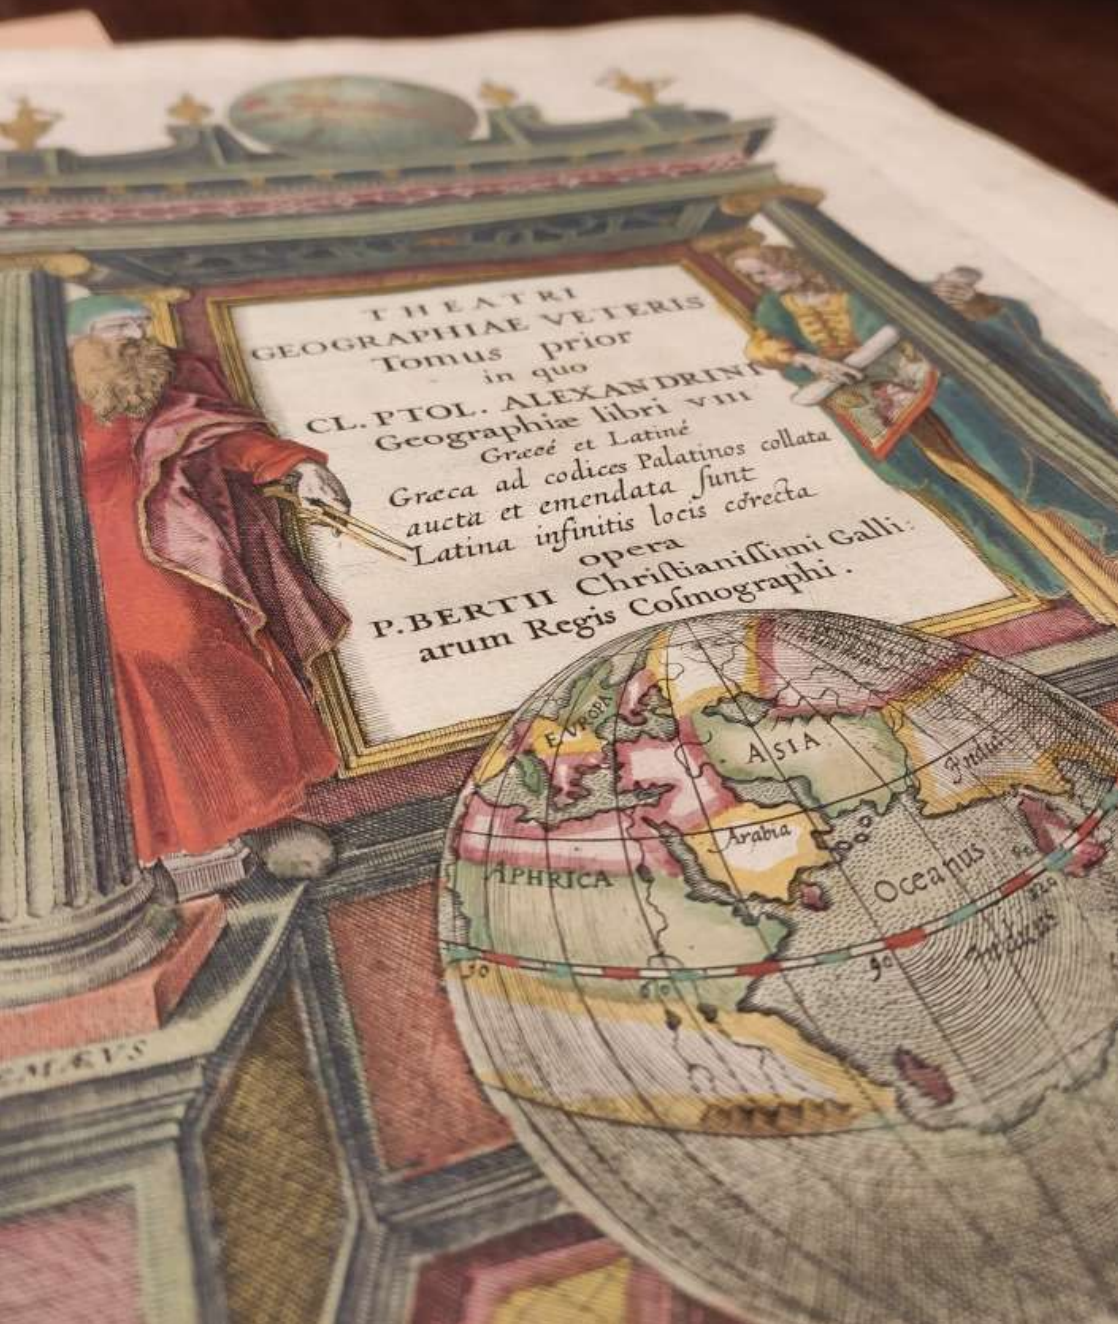 THEATRI
GEOGRAPHIAE VETERIS
Tomus prior
in quo
CL. PTOL. ALEXANDRINI
Geographiæ libri VIII
Græcé et Latiné
Græca ad codices Palatinos collata
aucta et emendata ſunt
Latina infinitis locis corecta
opera
P. BERTII Chriſtianiſſimi Galli:
arum Regis Coſmographi.
EVROPE
ASIA
India
Arabia
APHRICA
Oceanus
Indicus
90